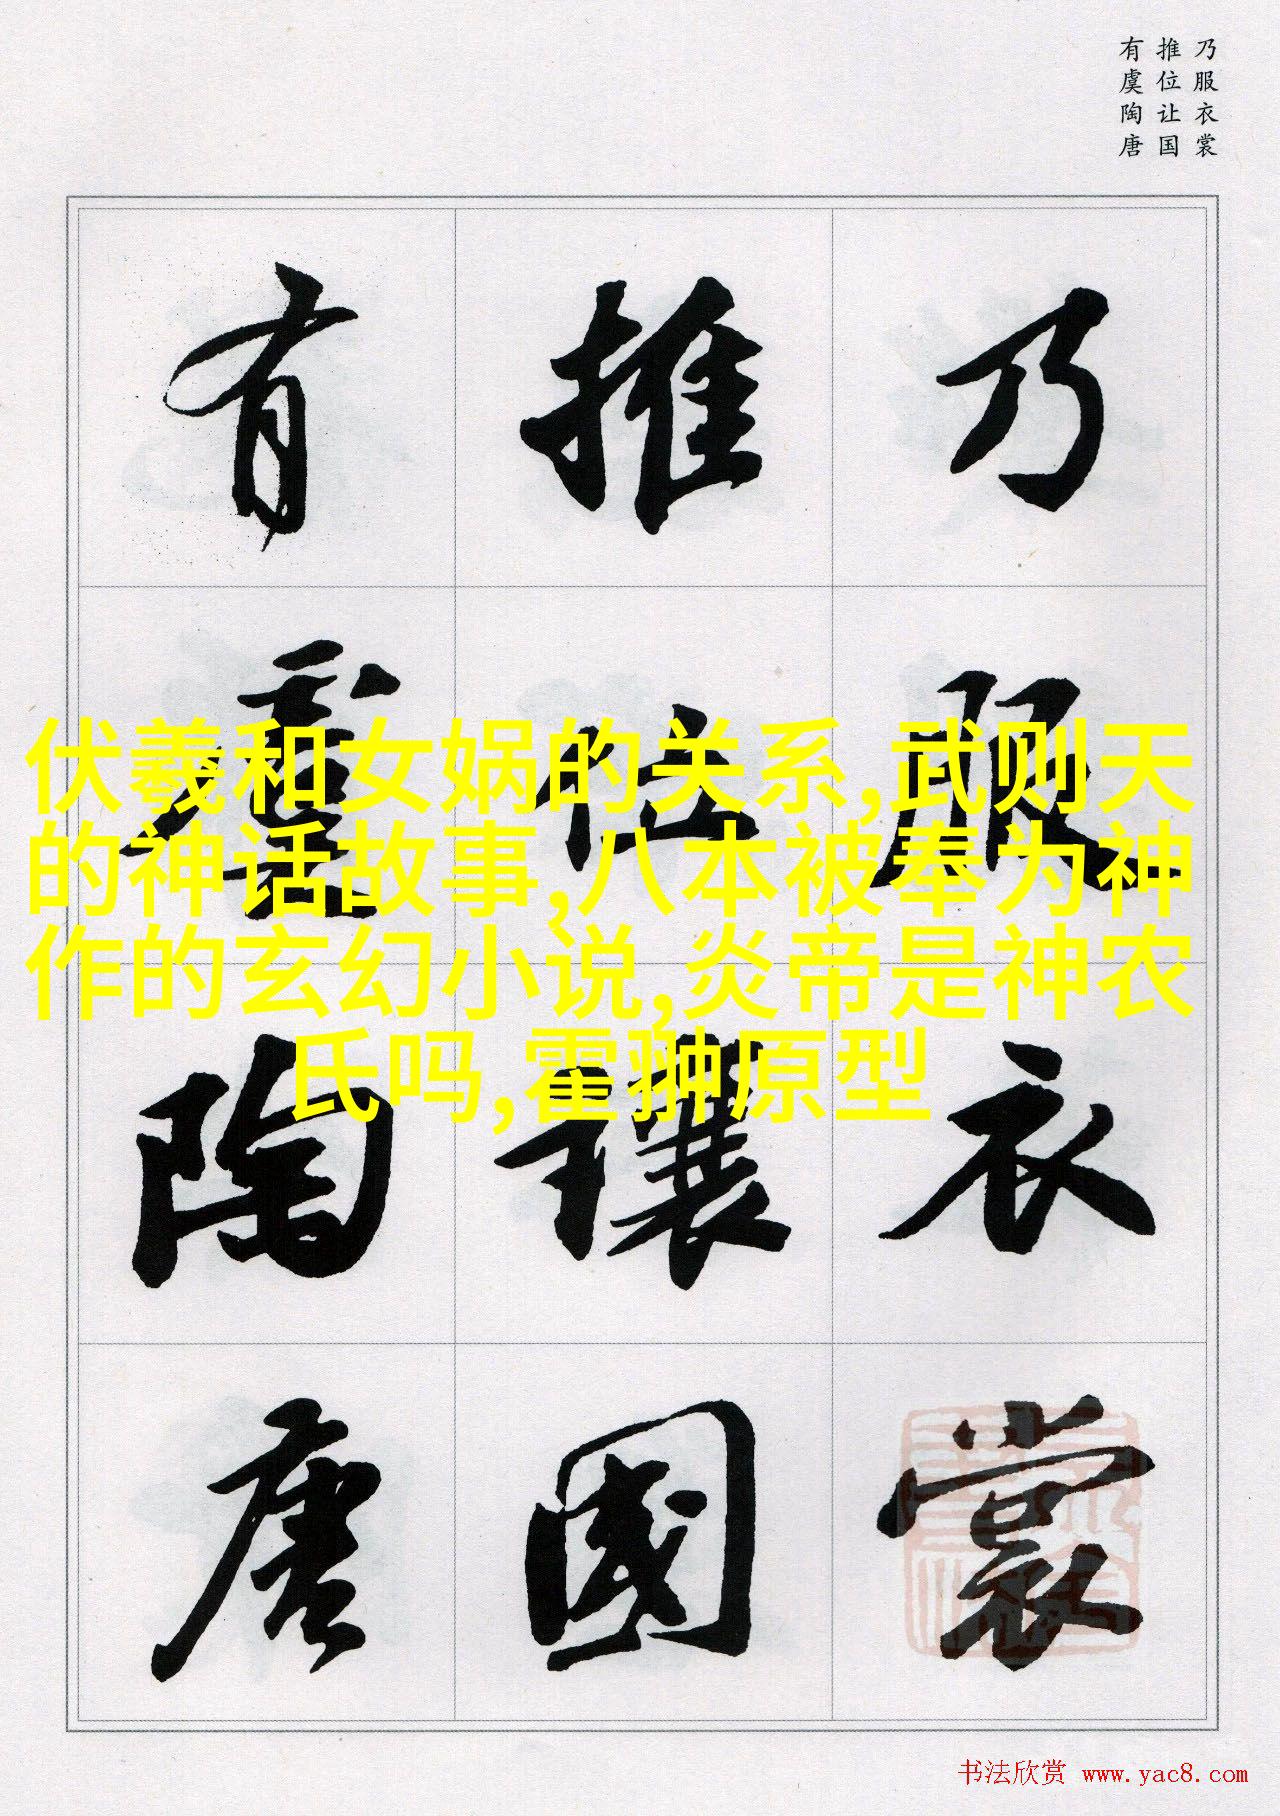 乃服衣裳
推位让国
有虞陶唐
乃服衣裳
推位讓國
有虞陶唐
伏羲和女娲的关系,武则天
的神话故事,八本被奉为神
作的玄幻小说,炎帝是神农
氏吗,霍翀原型
书法欣赏 www.yac8.com